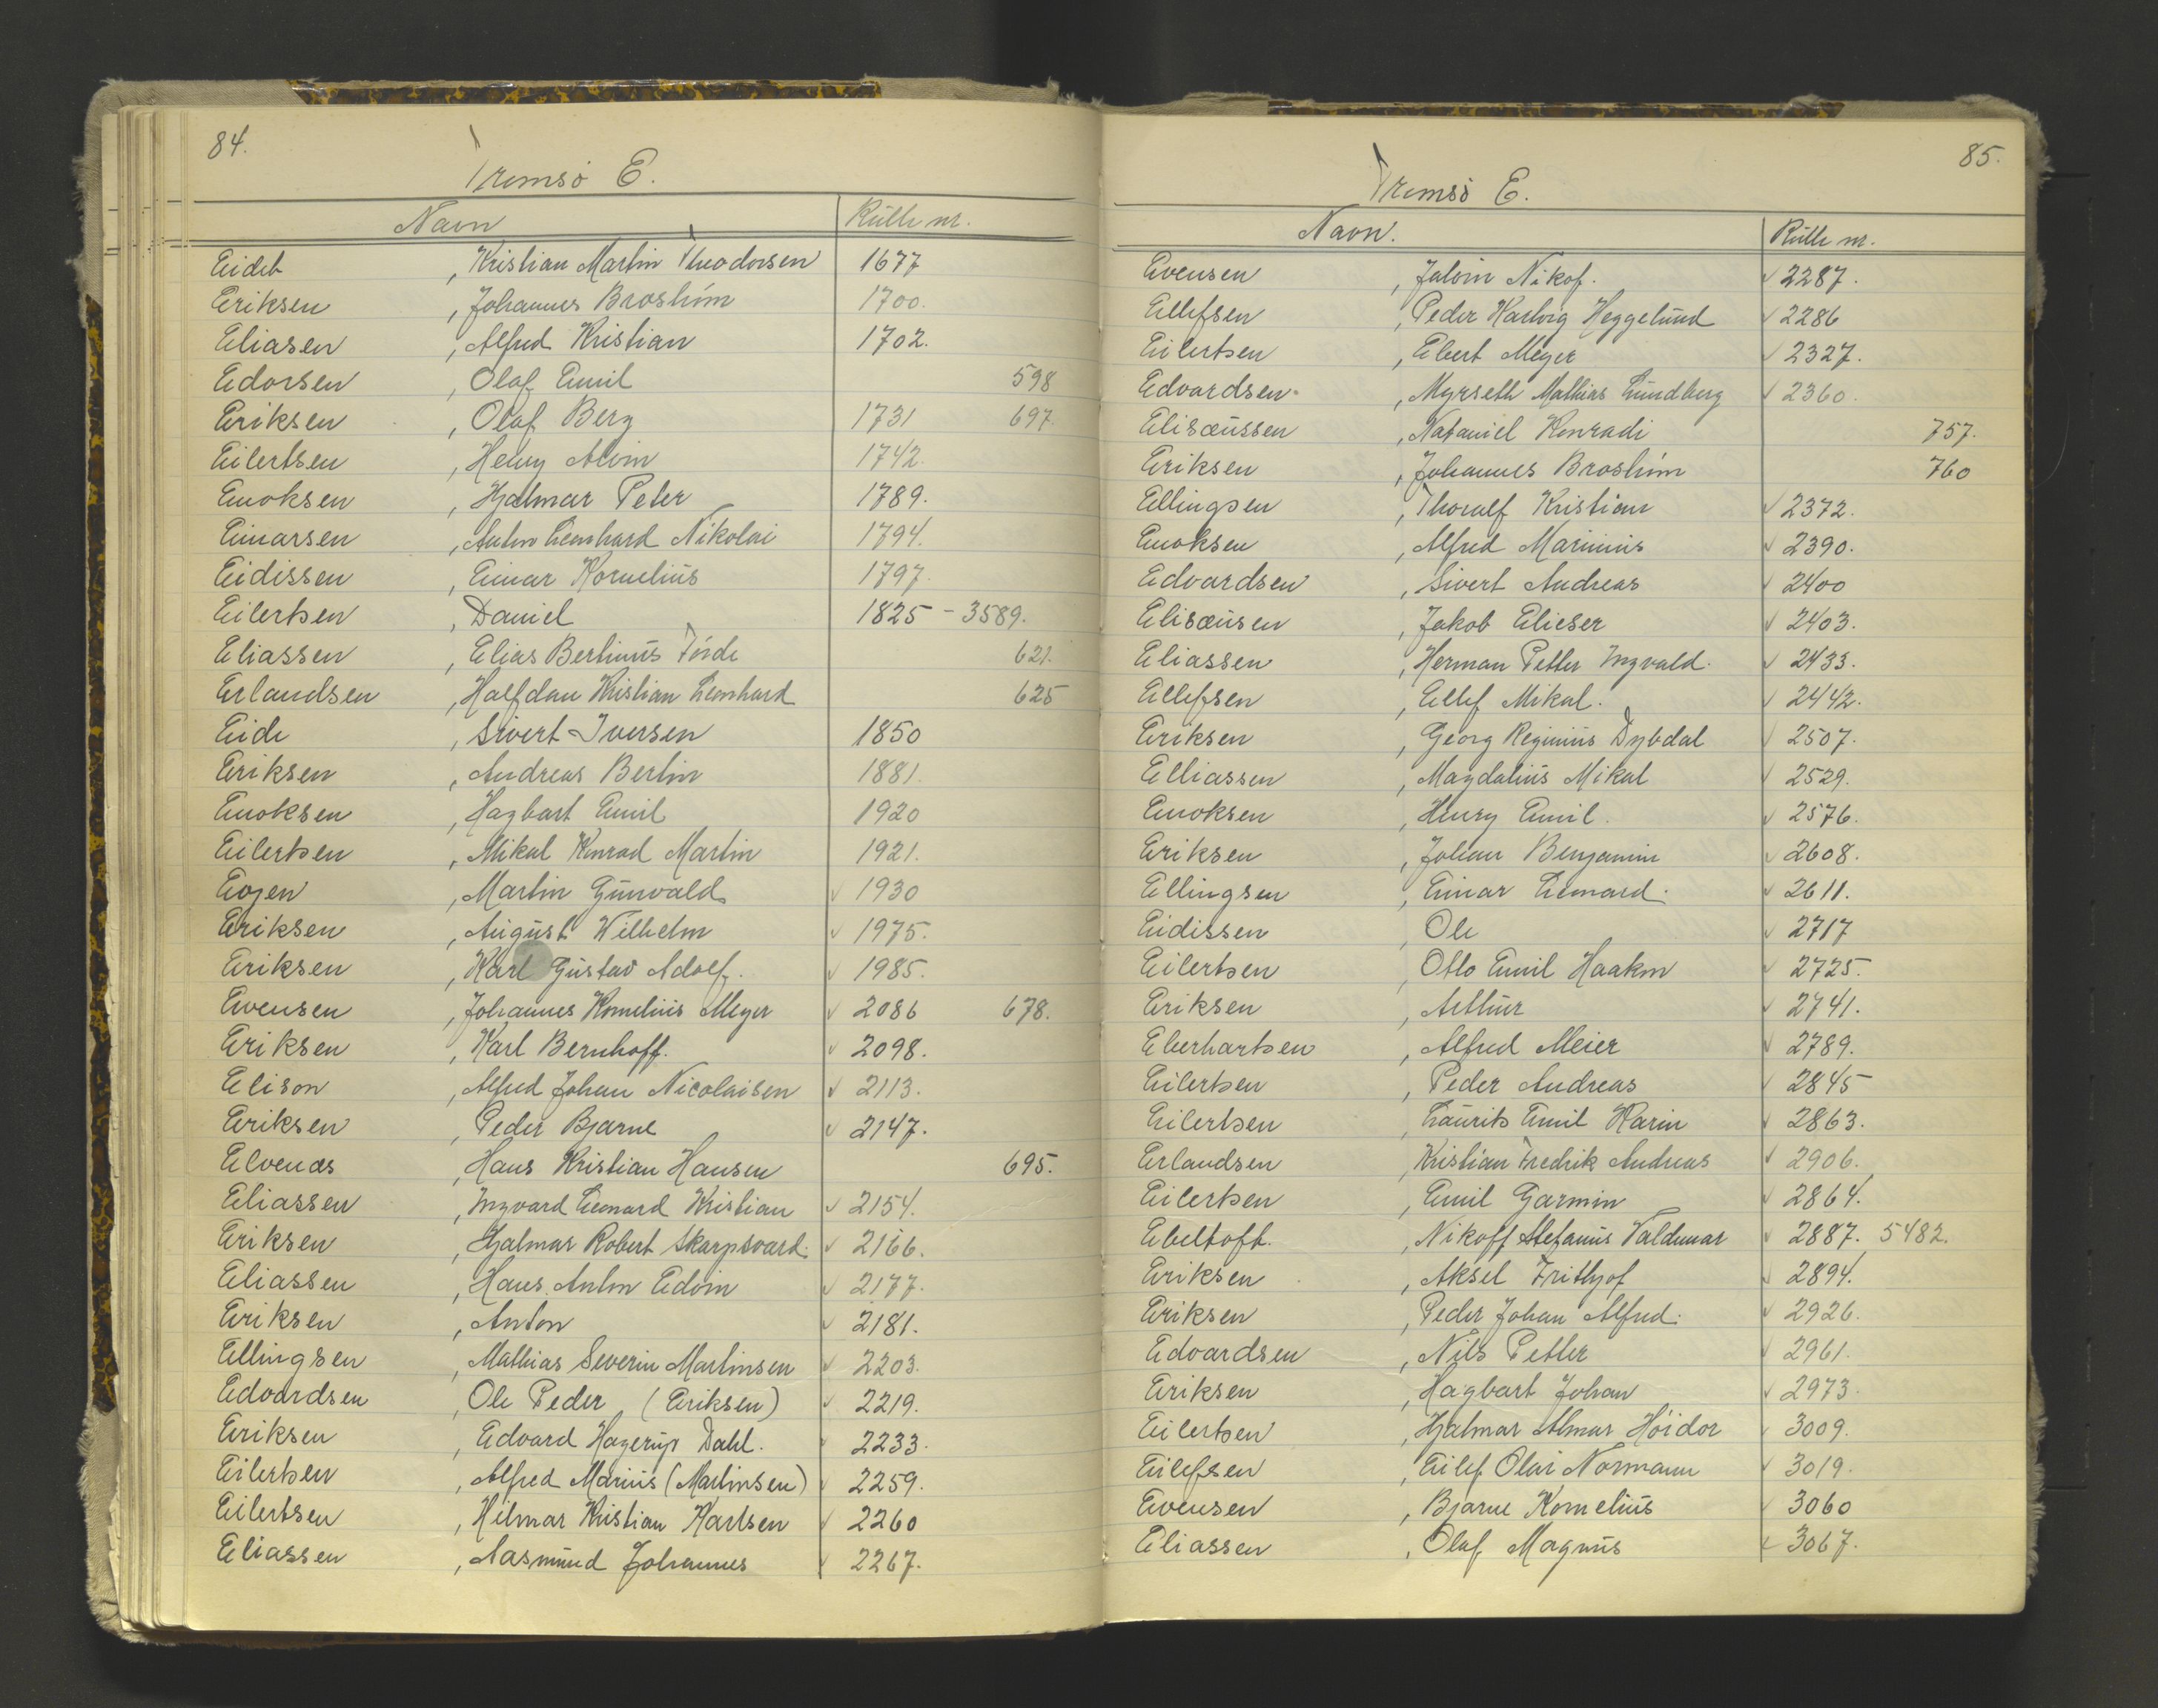 84.
Tromsø E.
Navn Rulle nr.
Eidet , Kristian Martin Theodorsen 1677
Eriksen , Johannes Brostrøm 1700.
Eliasen , Alfred Kristian 1702.
Edorsen , Olaf Emil 598
Eriksen , Olaf Berg 1731 697.
Eilertsen , Henry Alvin 1742.
Enoksen , Hjalmar Peter 1789.
Einarsen , Anton Leonhard Nikolai 1794.
Eidissen , Einar Kornelius 1797.
Eilertsen , Daniel 1825 - 3589.
Eliassen , Elias Bertinus Förde 621.
Erlandsen , Halfdan Kristian Leonhard 625
Eide , Sivert Iversen 1850
Eriksen , Andreas Bertin 1881.
Enoksen , Hagbart Emil 1920
Eilertsen , Mikal Konrad Martin 1921.
Evjen , Martin Gunvald 1930
Eriksen , August Wilhelm 1975.
Eriksen , Karl Gustav Adolf. 1985.
Evensen , Johannes Kornelius Meyer 2086 678.
Eriksen , Karl Bernhoff. 2098.
Elison , Alfred Johan Nicolaisen 2113.
Eriksen , Peder Bjarne 2147.
Elvenæs , Hans Kristian Hansen 695.
Eliassen , Ingvard Leonard Kristian 2154.
Eriksen , Hjalmar Robert Skarpsvard. 2166.
Eliassen , Hans Anton Edvin 2177.
Eriksen , Anton 2181.
Ellingsen , Mathias Severin Martinsen 2203.
Edvardsen , Ole Peder (Eriksen) 2219.
Eriksen , Edvard Hagerup Dahl. 2233.
Eilertsen , Alfred Marius (Martinsen) 2259.
Eilertsen , Hilmar Kristian Karlsen 2260
Eliassen , Aasmund Johannes 2267.
85.
Tromsø E.
Navn. Rulle nr.
Evensen , Jalvin Nikof. 2287.
Ellefsen , Peder Hartvig Heggelund 2286
Eilertsen , Ebert Meyer 2327.
Edvardsen , Myrseth Mathias Lundberg 2360.
Elisæussen , Nataniel Konradi 757.
Eriksen , Johannes Brostrøm 760
Ellingsen , Thoralf Kristian 2372.
Enoksen , Alfred Marinius 2390.
Edvardsen , Sivert Andreas 2400
Elisæusen , Jakob Elieser 2403.
Eliassen , Herman Petter Ingvald. 2433.
Ellefsen , Ellef Mikal. 2442.
Eriksen , Georg Reginius Dybdal 2507.
Elliassen , Magdalius Mikal 2529.
Enoksen , Henry Emil. 2576.
Eriksen , Johan Benjamin 2608.
Ellingsen , Einar Leonard. 2611.
Eidissen , Ole 2717
Eilertsen , Otto Emil Haakon 2725.
Eriksen , Arthur 2741.
Eberhartsen , Alfred Meier 2789.
Eilertsen , Peder Andreas 2845
Eilertsen , Laurits Emil Karin 2863.
Erlandsen , Kristian Fredrik Andreas 2906.
Eilertsen , Emil Garmin 2864.
Ebeltoft. , Nikoff Stefanus Valdemar 2887. 5482.
Eriksen , Aksel Frithjof 2894.
Eriksen , Peder Johan Alfred. 2926.
Edvardsen , Nils Petter 2961.
Eriksen , Hagbart Johan 2973.
Eilertsen , Hjalmar Almar Höidor 3009.
Eilefsen , Eilef Olai Normann 3019.
Evensen , Bjarne Kornelius 3060
Eliassen , Olaf Magnus 3067.